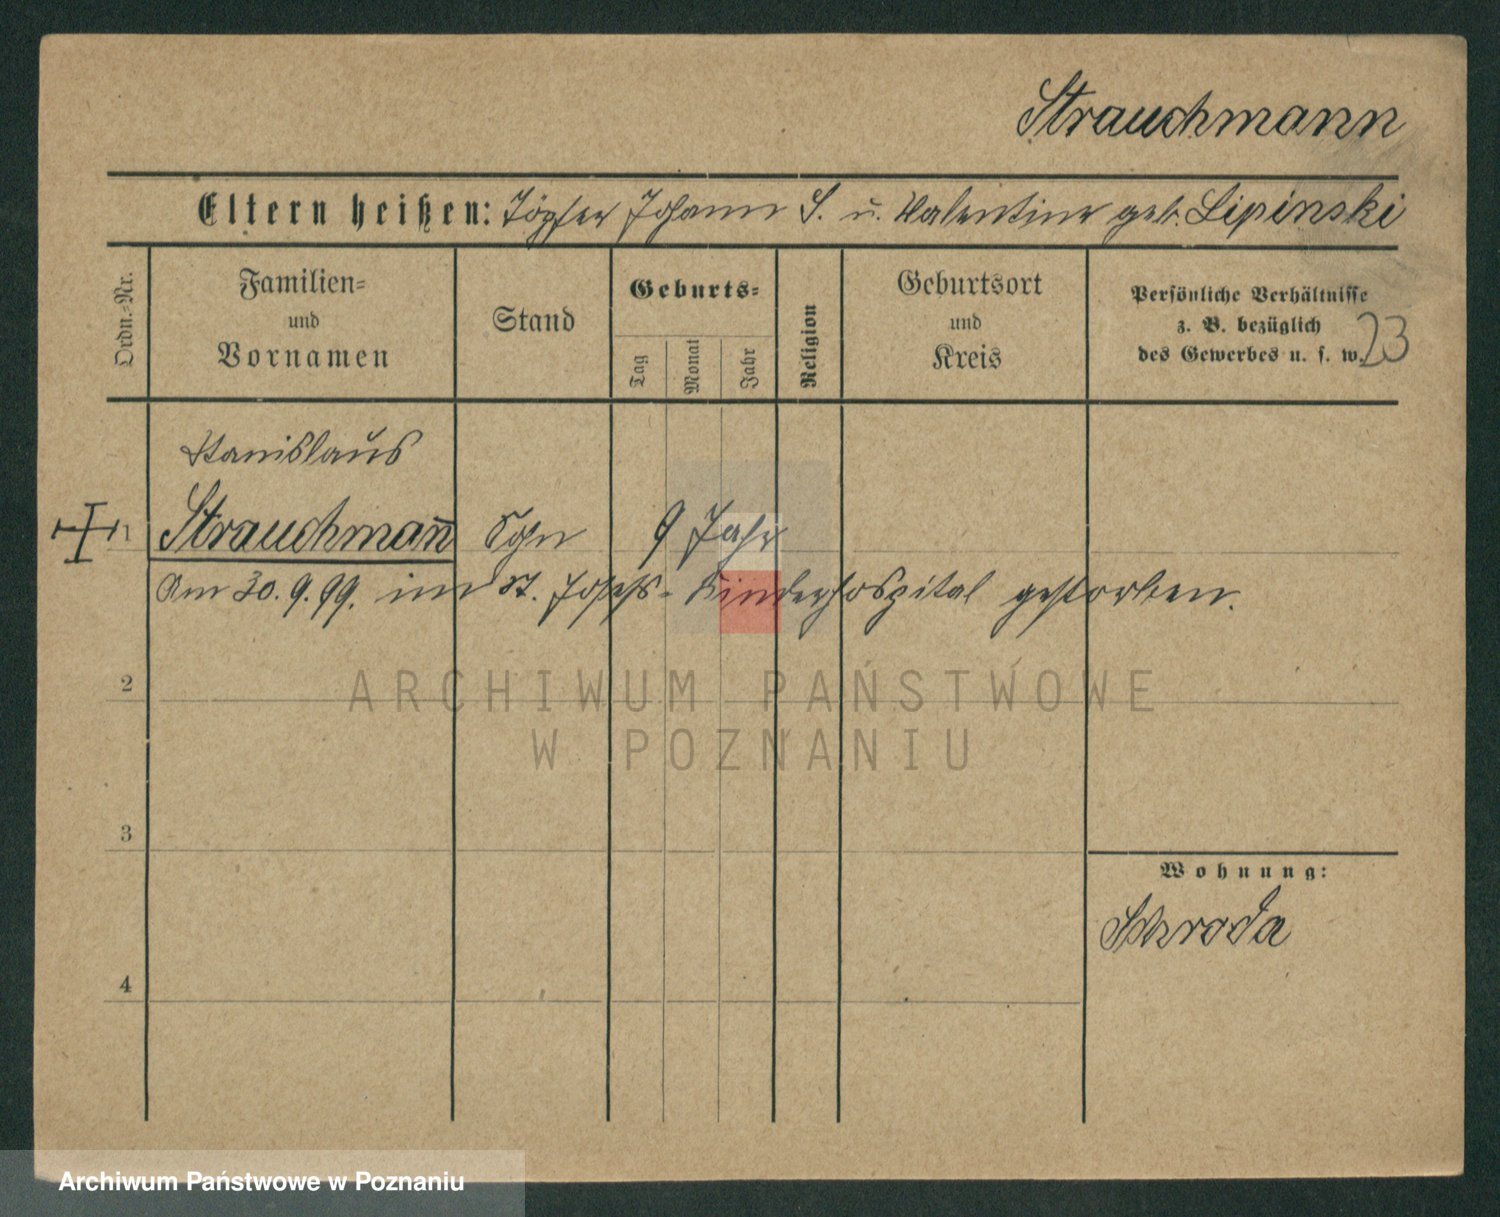 Strauchmann
Eltern heißen: Töpfer Johann S. u. Valentine geb. Lipinski
Ordn.-Nr.
Familien=
und
Vornamen
Stand
Geburts=
Tag
Monat
Jahr
Religion
Geburtsort
und
Kreis
Persönliche Verhältnisse
z. B. bezüglich
des Gewerbes u. s. w.
23
Stanislaus
1 Strauchman̄ Sohn 9 Jahr
Am 30.9.99. im St. Josefs-Kinderhospital gestorben.
2
ARCHIWUM PAŃSTWOWE
W POZNANIU
3
Wohnung:
Schroda
4
Archiwum Państwowe w Poznaniu